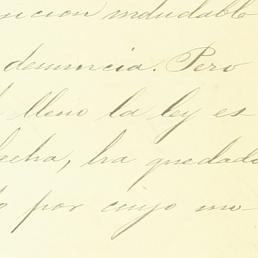 indudable
denuncia. Pero
lleno la ley es
ha quedado
por cuyo mo-